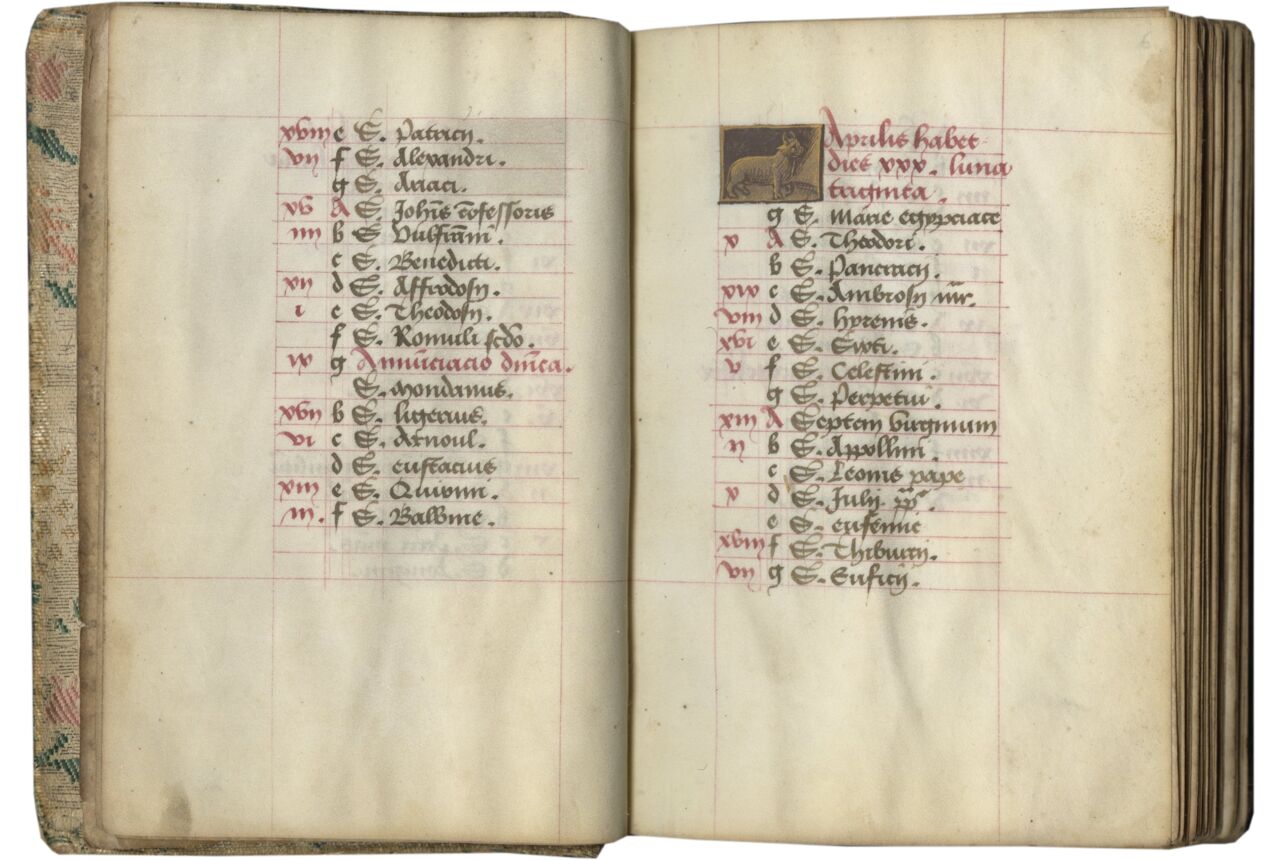 xviii e S. Patricij.
vii f S. Alexandri.
g S. Aciaci.
xv A S. Joh̄is cōfessoris
iiii b S. Vulfran̄ni.
c S. Benedicti.
xii d S. Affrodosij.
i e S. Theodosij.
f S. Romuli
ix g Annūciacio dn̄ica.
S. Mondanus.
xvii b S. ligerius.
vi c S. Arnoul.
d S. eustacius
xiiii e S. Quirini.
iii. f S. Balbine.
6
Aprilis habet
dies xxx. luna
triginta.
g S. Marie egypciace
x A S. Theodori.
b S. Pancracij.
xix c S. Ambrosij
viii d S. hyrenis.
xvi e S. Sixti.
v f S. Celestini.
g S. Perpetui.
xiii A Septem virginum
ii b S. Appollini.
c S. Leonis pape
x d S. Julij pp̄.
e S. eufemie
xviii f S. Thiburcij.
vii g S. Eusicij.